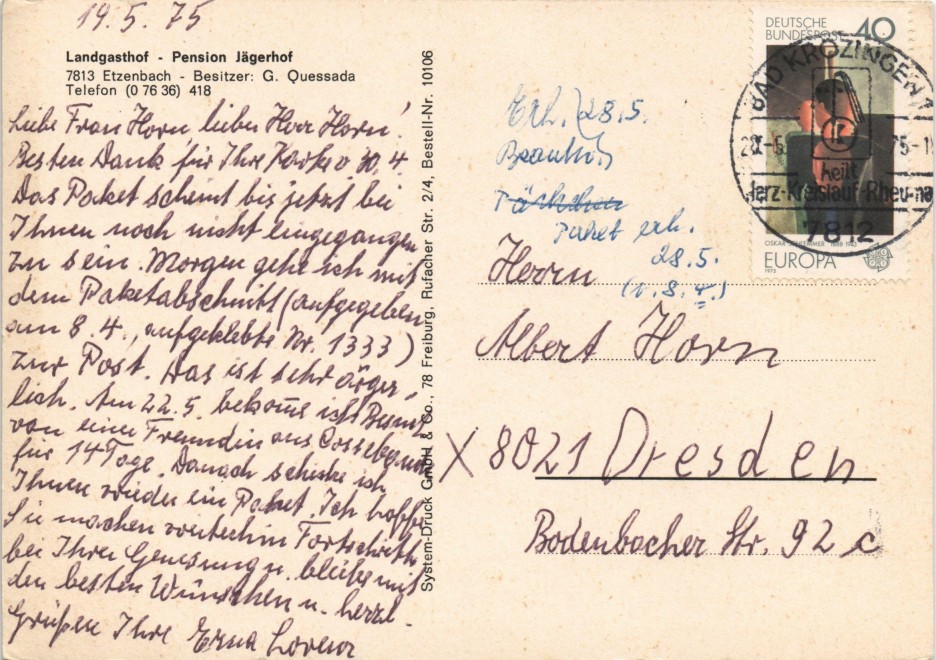 19.5.75
Landgasthof - Pension Jägerhof
7813 Etzenbach - Besitzer: G. Quessada
Telefon (0 76 36) 418
Liebe Frau Horn, lieber Herr Horn!
Besten Dank für Ihre Karte v 30.4.
Das Paket scheint bis jetzt bei
Ihnen noch nicht eingegangen
zu sein. Morgen gehe ich mit
dem Paketabschnitt (aufgegeben
am 8.4., aufgeklebte Nr. 1333)
zur Post. Das ist sehr ärger-
lich. Am 22.5. bekomme ich Besuch
von einer Freundin aus Cossebaude
für 14 Tage. Danach schicke ich
Ihnen wieder ein Paket. Ich hoffe
Sie machen weiterhin Fortschritte
bei Ihrer Genesung u. bleibe mit
den besten Wünschen u. herzl.
Grüßen Ihre Erna Lorenz
System-Druck GmbH & Co., 78 Freiburg, Rufacher Str. 2/4, Bestell-Nr. 10106
Erh. 28.5.
Päckchen
Paket erh.
28.5.
(v. 8.4.)
DEUTSCHE
BUNDESPOST 40
OSKAR SCHLEMMER 1888-1943
EUROPA
1975
BAD KROZINGEN 1
heilt
Herz-Kreislauf-Rheuma
7812
Herrn
Albert Horn
X 8021 Dresden
Bodenbacher Str. 92 c